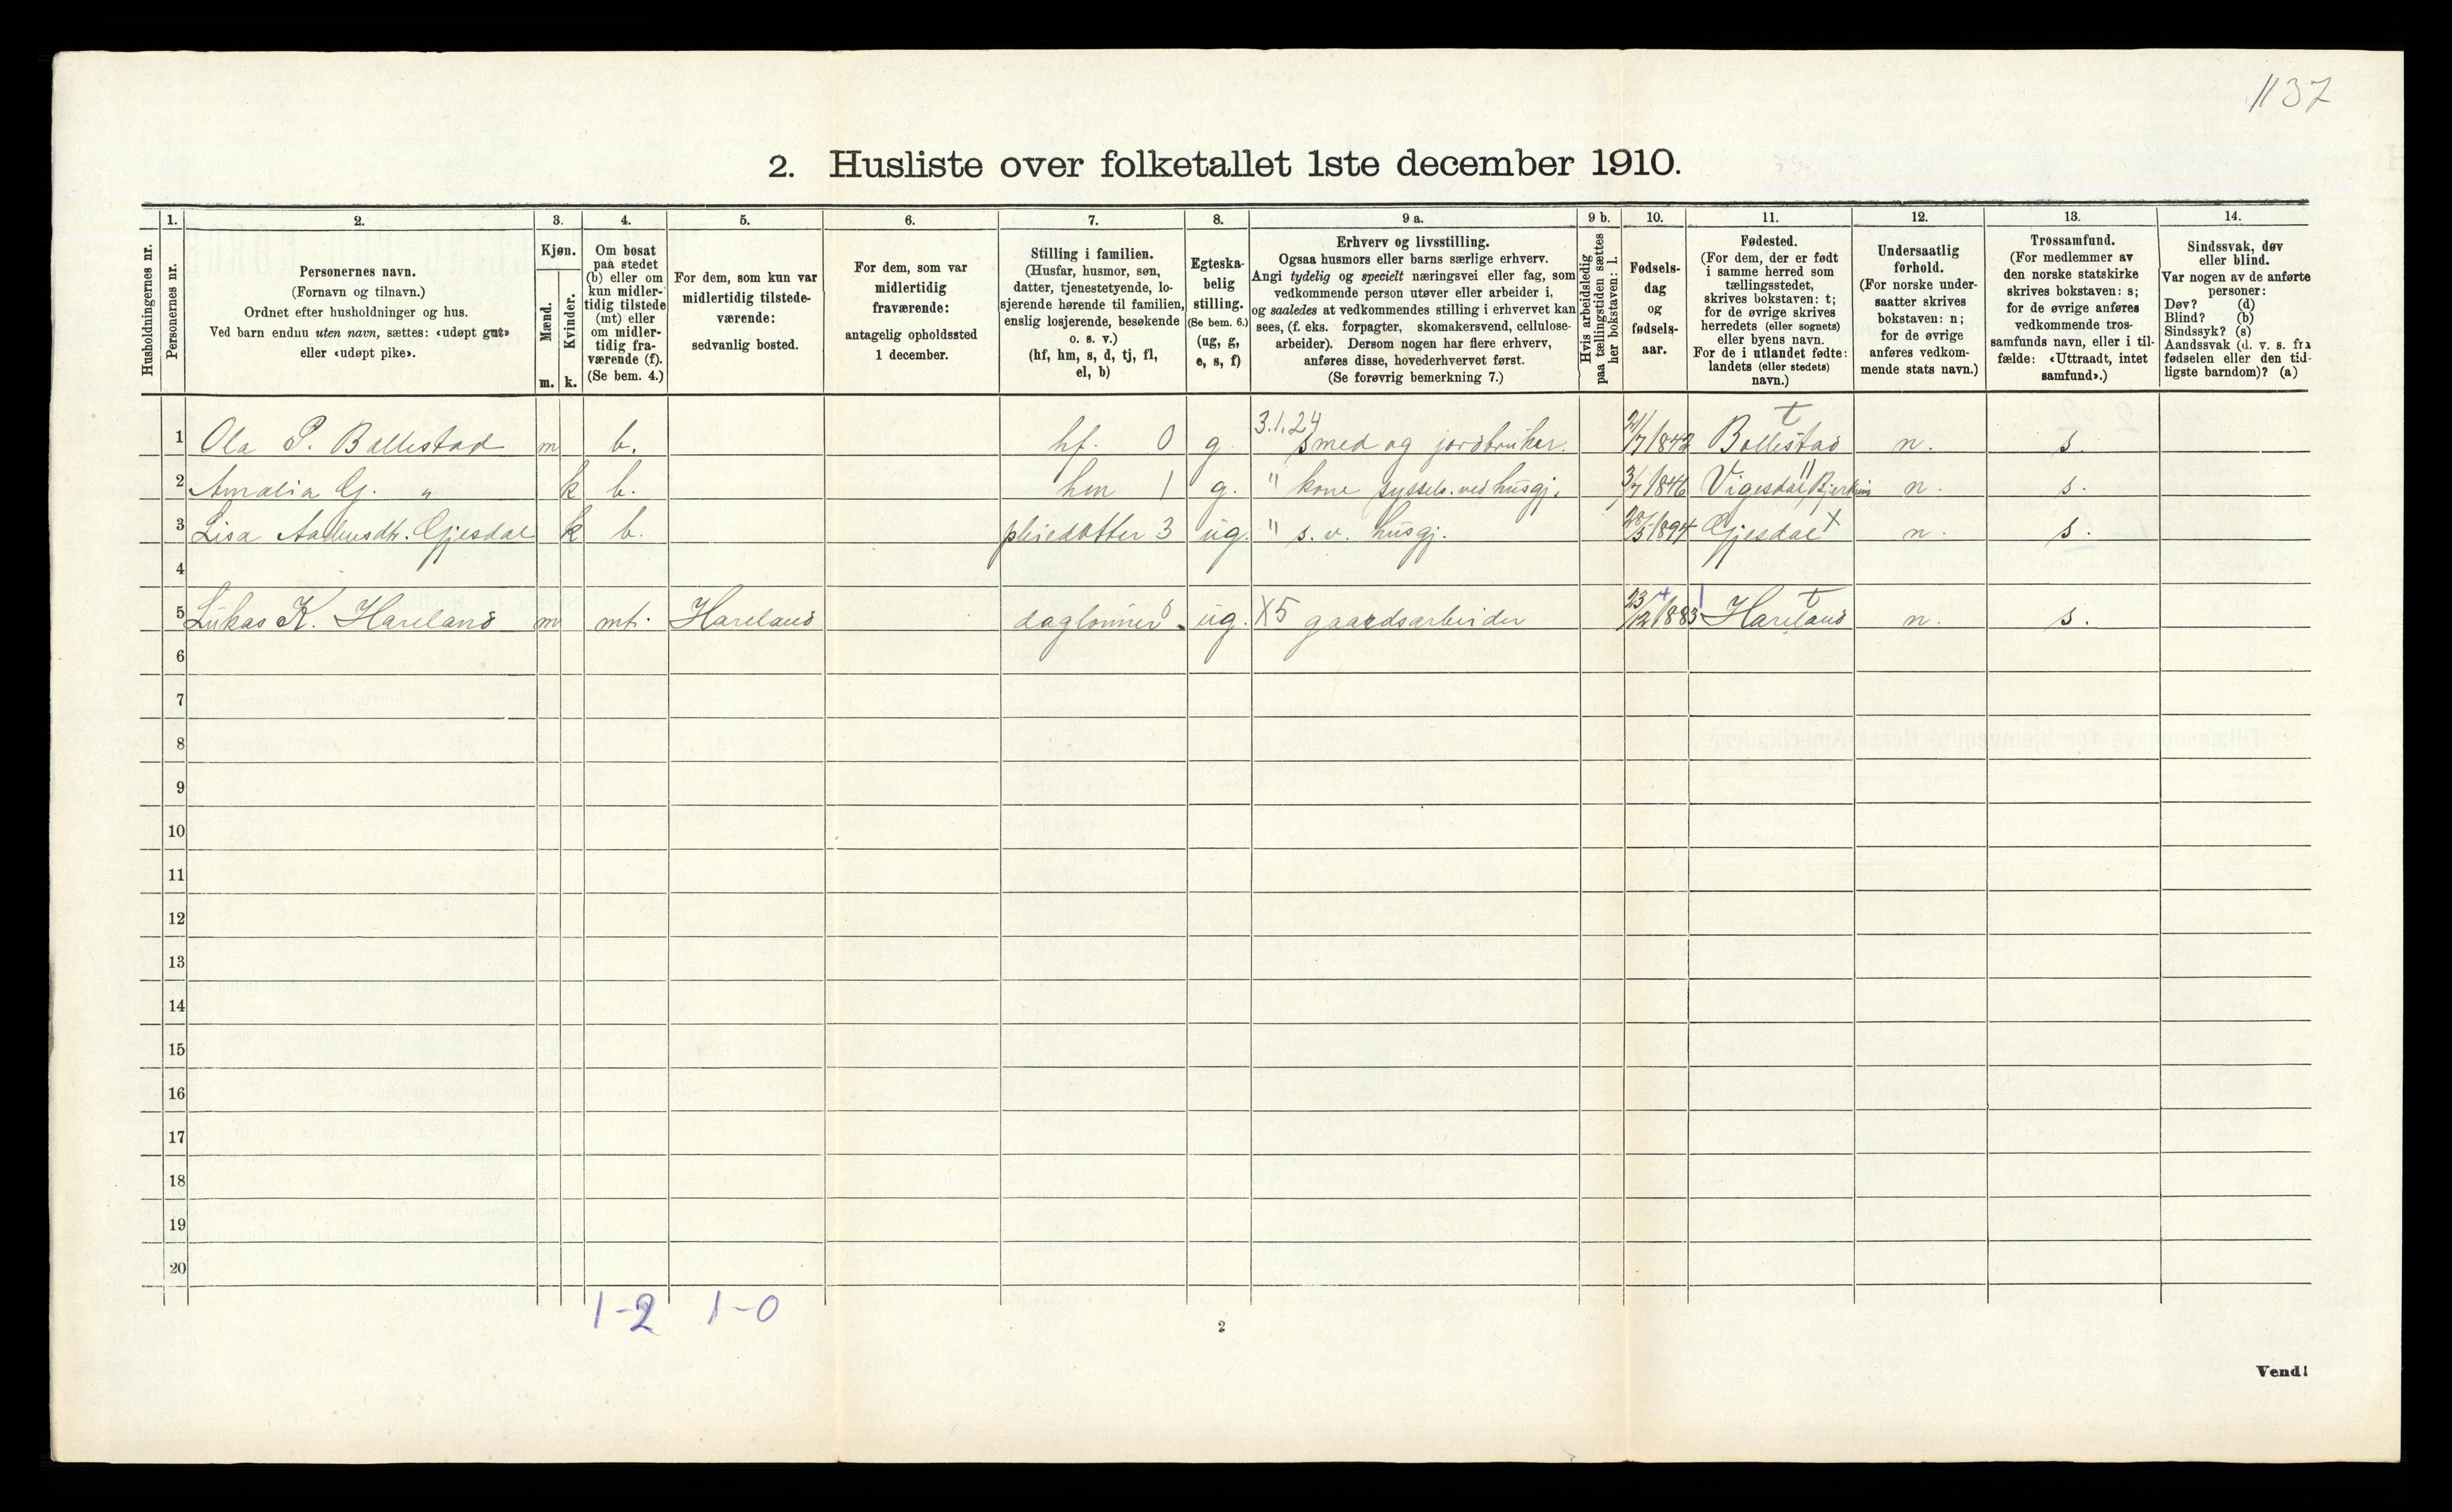 1137
2. Husliste over folketallet 1ste december 1910.
1. 2. 3. 4. 5. 6. 7. 8. 9 a. 9 b. 10. 11. 12. 13. 14.
Husholdningernes nr.
Personernes nr.
Personernes navn.
(Fornavn og tilnavn.)
Ordnet efter husholdninger og hus.
Ved barn endnu uten navn, sættes: «udøpt gut»
eller «udøpt pike».
Kjøn.
Mænd.
Kvinder.
m. k.
Om bosat
paa stedet
(b) eller om
kun midler-
tidig tilstede
(mt) eller
om midler-
tidig fra-
værende (f).
(Se bem. 4.)
For dem, som kun var
midlertidig tilstede-
værende:
sedvanlig bosted.
For dem, som var
midlertidig
fraværende:
antagelig opholdssted
1 december.
Stilling i familien.
(Husfar, husmor, søn,
datter, tjenestetyende, lo-
sjerende hørende til familien,
enslig losjerende, besøkende
o. s. v.)
(hf, hm, s, d, tj, fl,
el, b)
Egteska-
belig
stilling.
(Se bem. 6.)
(ug, g,
e, s, f)
Erhverv og livsstilling.
Ogsaa husmors eller barns særlige erhverv.
Angi tydelig og specielt næringsvei eller fag, som
vedkommende person utøver eller arbeider i,
og saaledes at vedkommendes stilling i erhvervet kan
sees, (f. eks. forpagter, skomakersvend, cellulose-
arbeider). Dersom nogen har flere erhverv,
anføres disse, hovederhvervet først.
(Se forøvrig bemerkning 7.)
Hvis arbeidsledig
paa tællingstiden sættes
her bokstaven: l.
Fødsels-
dag
og
fødsels-
aar.
Fødested.
(For dem, der er født
i samme herred som
tællingsstedet,
skrives bokstaven: t;
for de øvrige skrives
herredets (eller sognets)
eller byens navn.
For de i utlandet fødte:
landets (eller stedets)
navn.)
Undersaatlig
forhold.
(For norske under-
saatter skrives
bokstaven: n;
for de øvrige
anføres vedkom-
mende stats navn.)
Trossamfund.
(For medlemmer av
den norske statskirke
skrives bokstaven: s;
for de øvrige anføres
vedkommende tros-
samfunds navn, eller i til-
fælde: «Uttraadt, intet
samfund».)
Sindssvak, døv
eller blind.
Var nogen av de anførte
personer:
Døv? (d)
Blind? (b)
Sindssyk? (s)
Aandssvak (d. v. s. fra
fødselen eller den tid-
ligste barndom)? (a)
3.1.24 t
1 Ola P. Ballestad m b. hf. 0 g smed og jordbruker. 21/7 1842 Bollestad n. s.
2 Amalia G. " k b. hm 1 g. " kone syssels. ved husgj. 3/7 1846 Vigesdal " Bjerkreim n. s.
3 Lisa Gjesdal k b. pleiedotter 3 ug. " s. v. husgj. 1894 Gjesdal x n. s.
4
5 Lukas K. Hareland m mt. Hareland daglønner 0 ug. X5 gaardsarbeider 23/12 1883 Hareland t n. s.
6
7
8
9
10
11
12
13
14
15
16
17
18
19
20
1-2 1-0
2
Vend!